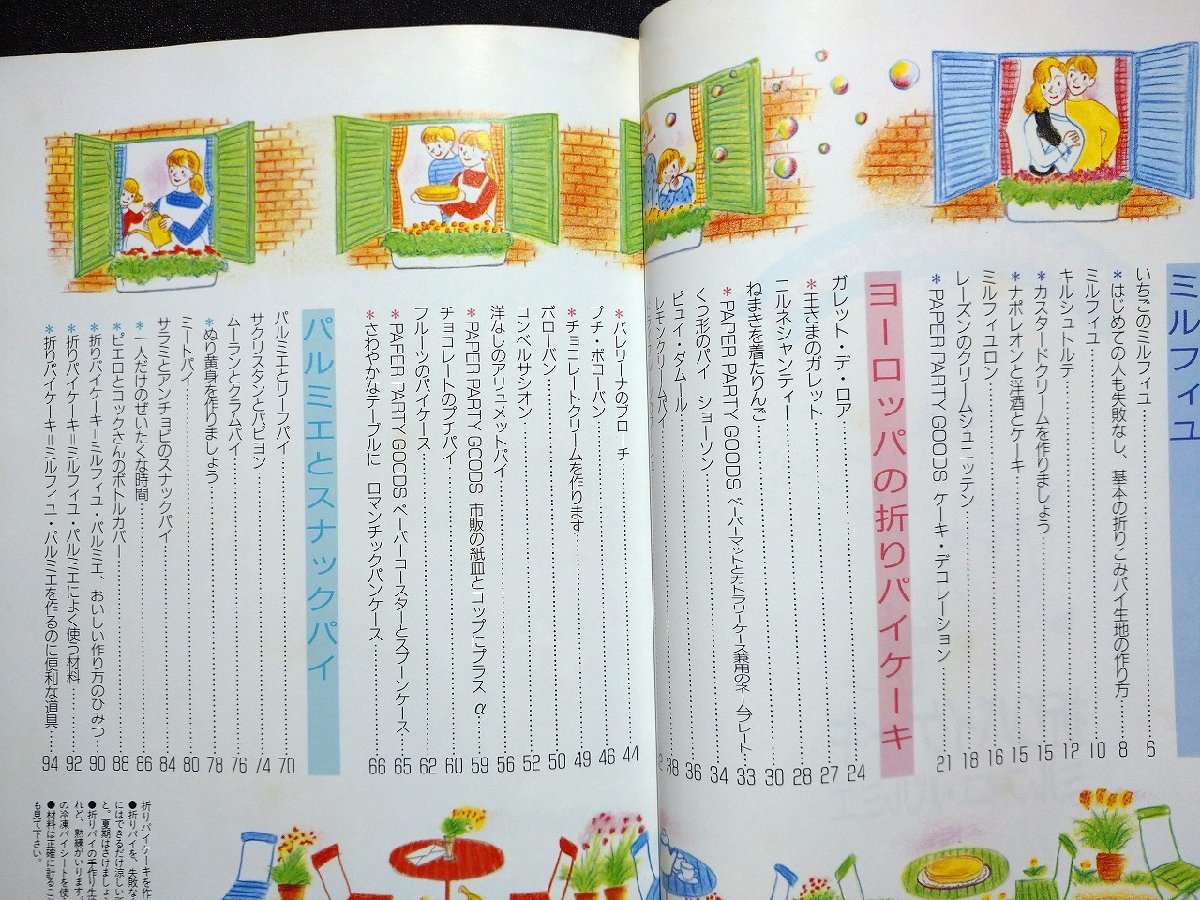 ミルフィユ
いちごのミルフィユ 6
*はじめての人も失敗なし、基本の折りこみパイ生地の作り方 8
ミルフィユ 10
キルシュトルテ 12
*カスタードクリームを作りましょう 15
*ナポレオンと洋酒とケーキ 15
ミルフィユロン 16
レーズンのクリームシュニッテン 18
*PAPER PARTY GOODS ケーキ・デコレーション 21
ヨーロッパの折りパイケーキ
ガレット・デ・ロア 24
*王さまのガレット 27
ニルネシャンティー 28
ねまきを着たりんご 30
*PAPER PARTY GOODS ペーパーマットとカトラリーケース兼用のネームプレート 33
くつ形のパイ ショーソン 34
ピュイ・ダムール 36
レモンクリームパイ 38
*バレリーナのブローチ 44
プチ・ボコーバン 46
*チョコレートクリームを作ります 49
ボローバン 50
コンベルサシオン 52
洋なしのアリュメットパイ 56
*PAPER PARTY GOODS 市販の紙皿とコップにプラスα 59
チョコレートのプチパイ 60
フルーツのパイケース 62
*PAPER PARTY GOODS ペーパーコースターとスプーンケース 65
*さわやかなテーブルに ロマンチックパンケース 66
パルミエとスナックパイ
パルミエとリーフパイ 70
サクリスタンとパピヨン 74
ムーランとクラムパイ 76
*ぬり黄身を作りましょう 78
ミートパイ 80
サラミとアンチョビのスナックパイ 84
*一人だけのぜいたくな時間 86
*ピエロとコックさんのボトルカバー 88
*折りパイケーキ=ミルフィユ・パルミエ、おいしい作り方のひみつ 90
*折りパイケーキ=ミルフィユ・パルミエによく使う材料 92
*折りパイケーキ=ミルフィユ・パルミエを作るのに便利な道具 94
折りパイケーキを作
●折りパイを、失敗な
にはできるだけ涼しい
と。夏期はさけましょ
●折りパイの手作り生
れど、熟練がいります。
の冷凍パイシートを使
●材料は正確に計ること
も見て下さい。